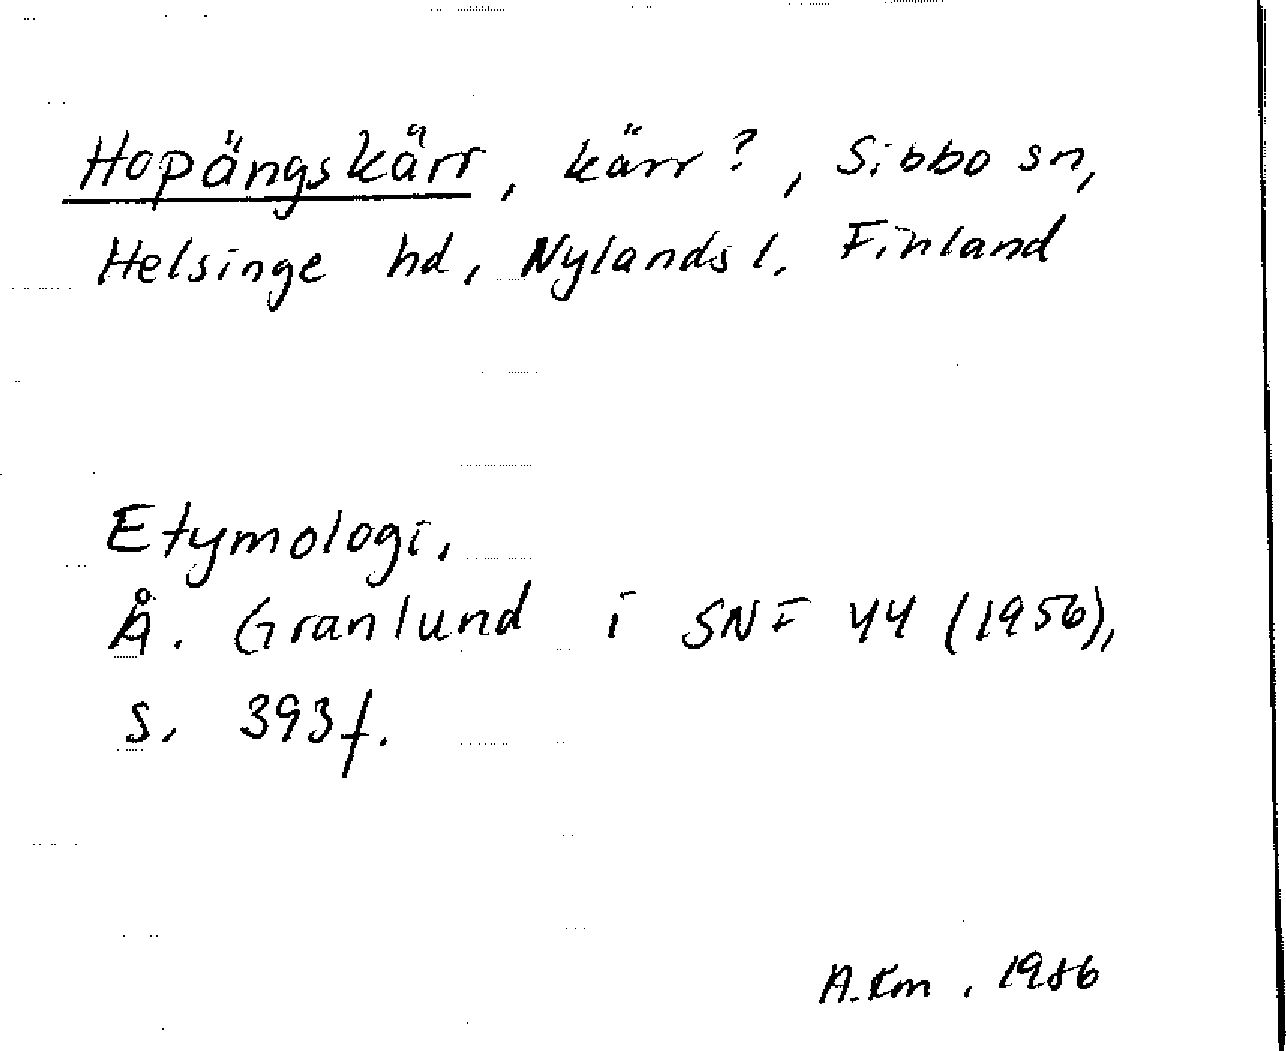 Hopängskärr, kärr?, Sibbo sn,
Helsinge hd, Nylands l. Finland
Etymologi.
Å. Granlund i SNF 44 (1956),
s. 393f.
A.Km. 1986